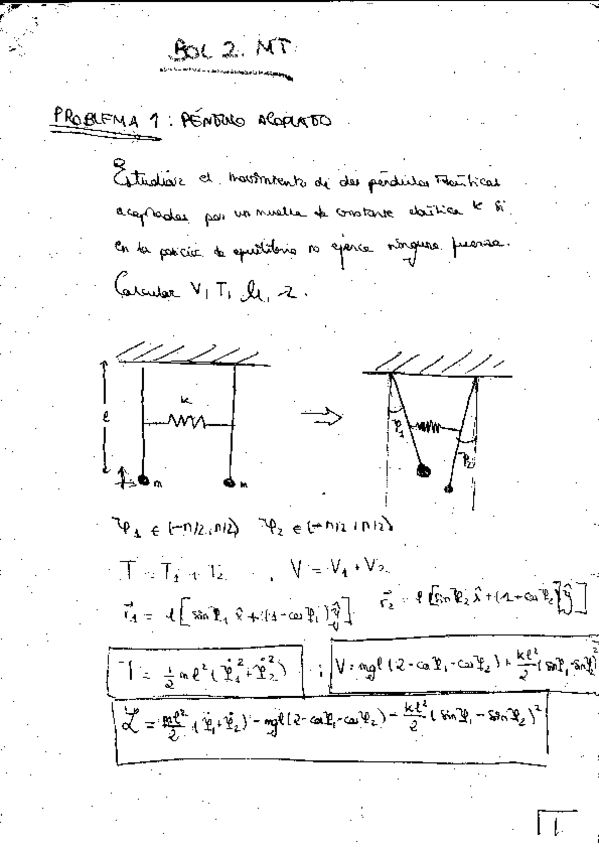 BOL 2. MT
PROBLEMA 1: PÉNDULO ACOPLADO
Estudiar el movimiento de dos péndulos idénticos
acoplados por un muelle de constante elástica K si
en la posición de equilibrio no ejerce ninguna fuerza.
Calcular V, T,
K
l
m m
φ1 φ2
φ1 ∈ (-π/2, π/2) φ2 ∈ (-π/2, π/2)
T = T1 + T2 , V = V1 + V2
r⃗1 = l [sin φ1 x̂ + (1-cos φ1) ŷ] r⃗2 = l [sin φ2 x̂ + (1-cos φ2) ŷ]
T = 1/2 ml² (φ̇1² + φ̇2²) ; V = mgl (2 - cos φ1 - cos φ2) + kl²/2 (sin φ1 - sin φ2)²
L = ml²/2 (φ̇1 + φ̇2) - mgl (2 - cos φ1 - cos φ2) - kl²/2 (sin φ1 - sin φ2)²
1